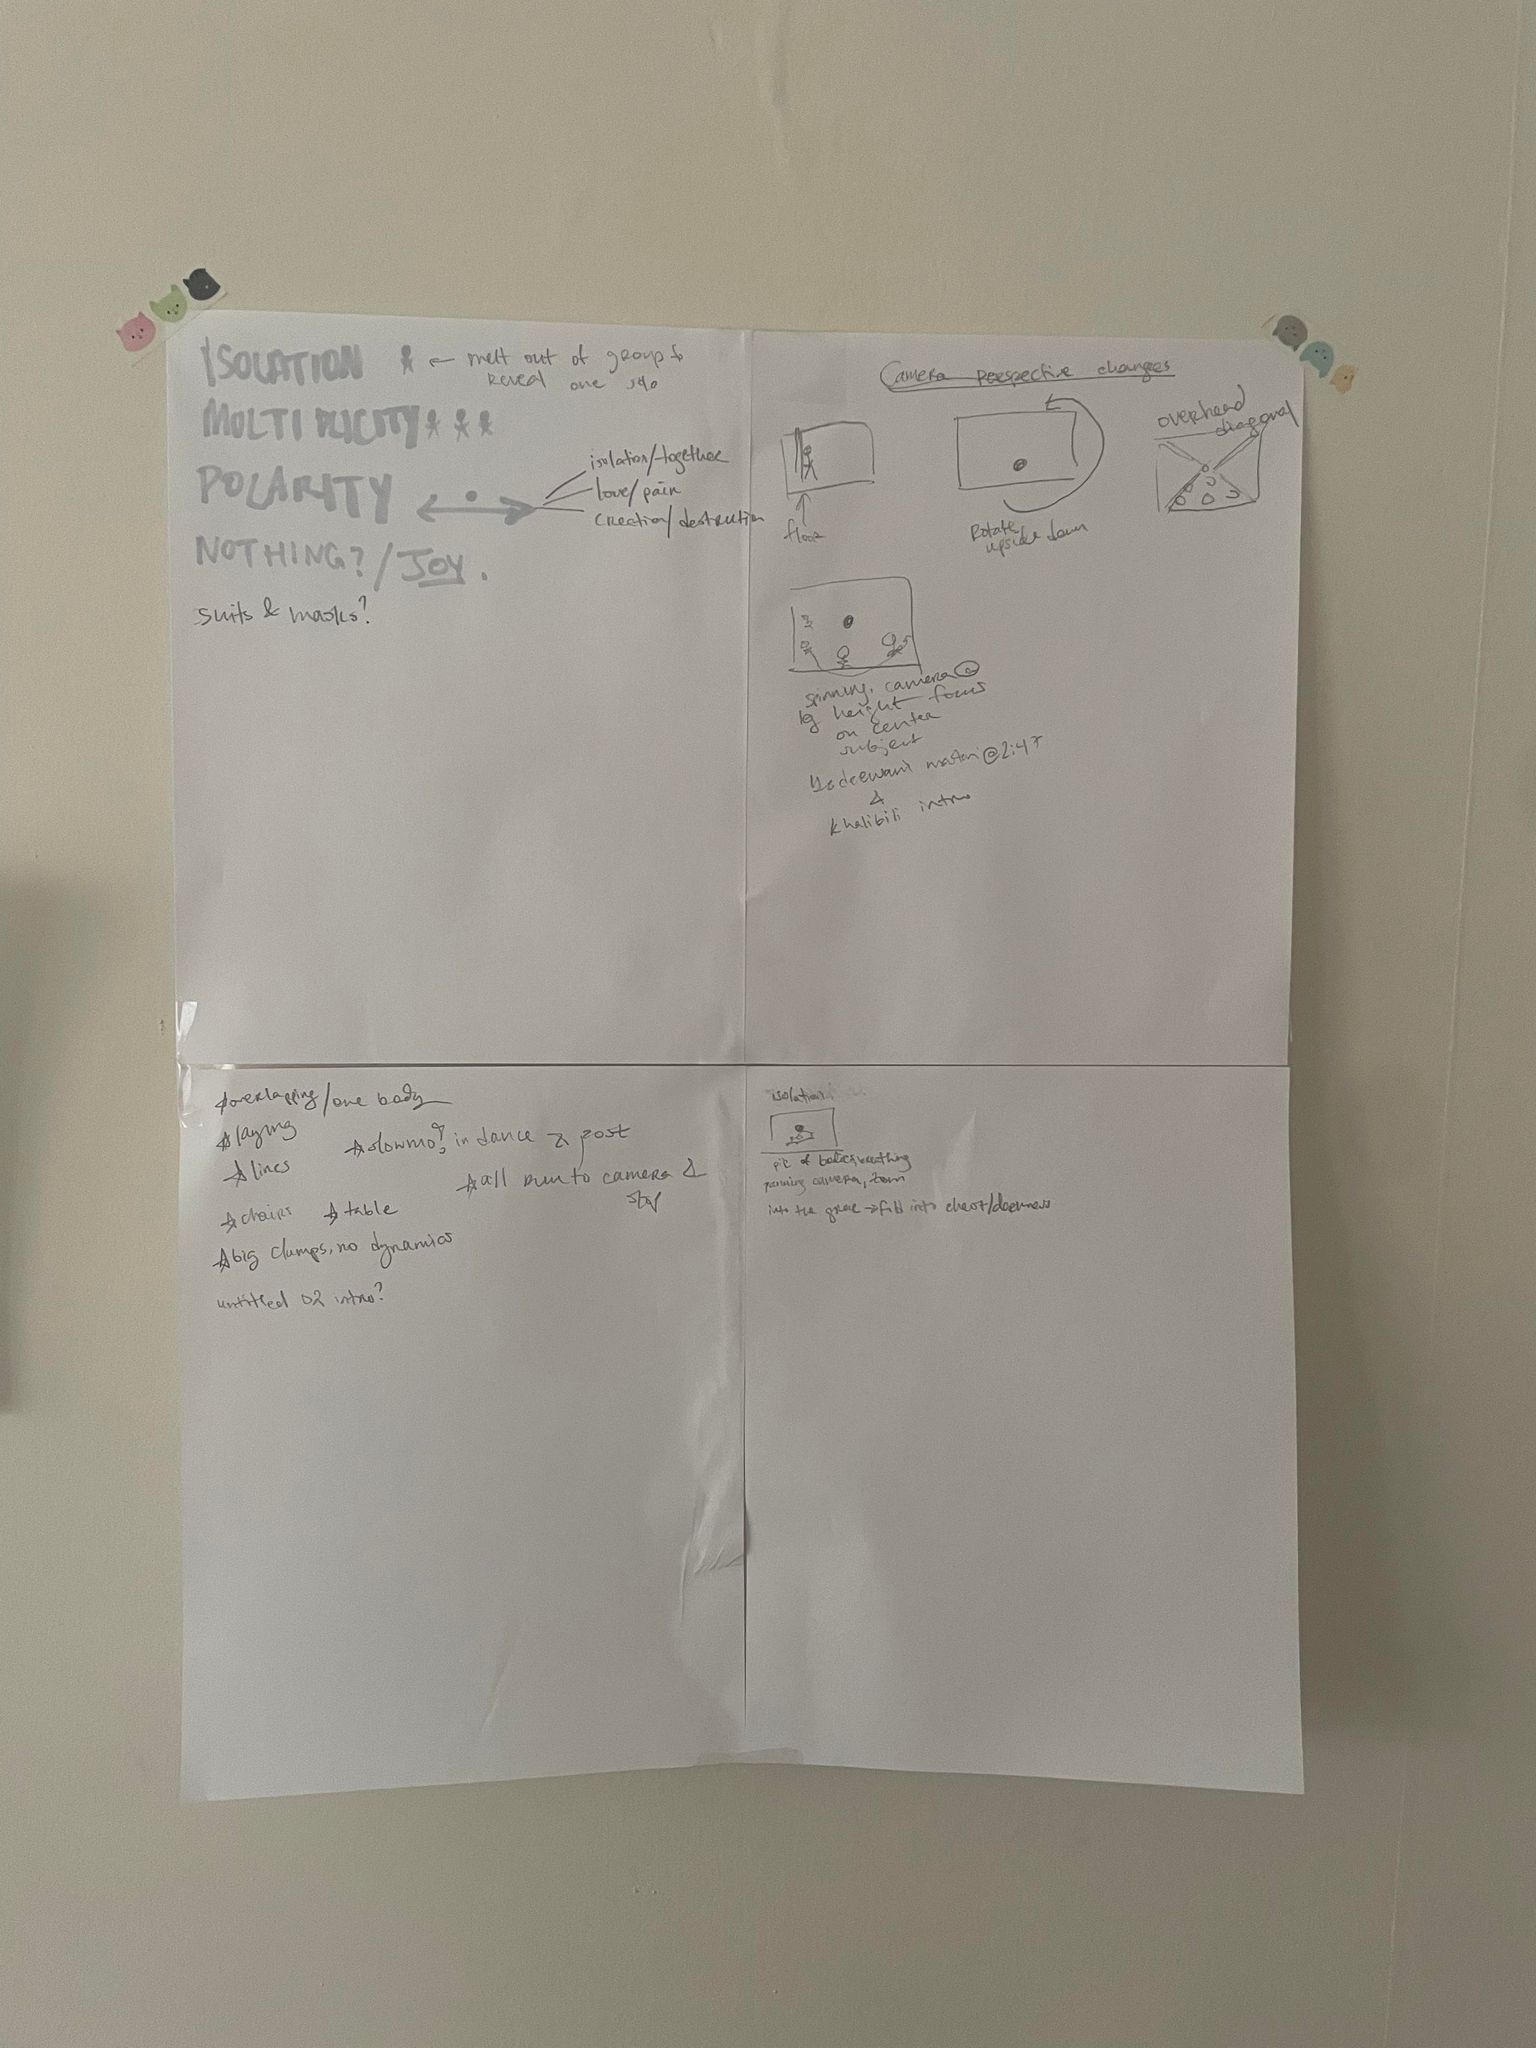 ISOLATION ← melt out of group &
reveal one solo
MULTIPLICITY
POLARITY
isolation/together
love/pain
creation/destruction
NOTHING?/JOY.
suits & masks?
Camera perspective changes
floor
Rotate
upside down
overhead
diagonal
spinning, camera @
height focus
on center
subject
deewani mastani @ 2:47
&
khalibili intro
overlapping/one body
laying
slowmo? in dance & post
lines
all run to camera &
stop
chairs
table
big clumps, no dynamics
untitled 02 intro?
isolation
pit of bodies breathing
panning camera, zoom
into the → fall into chest/deepness